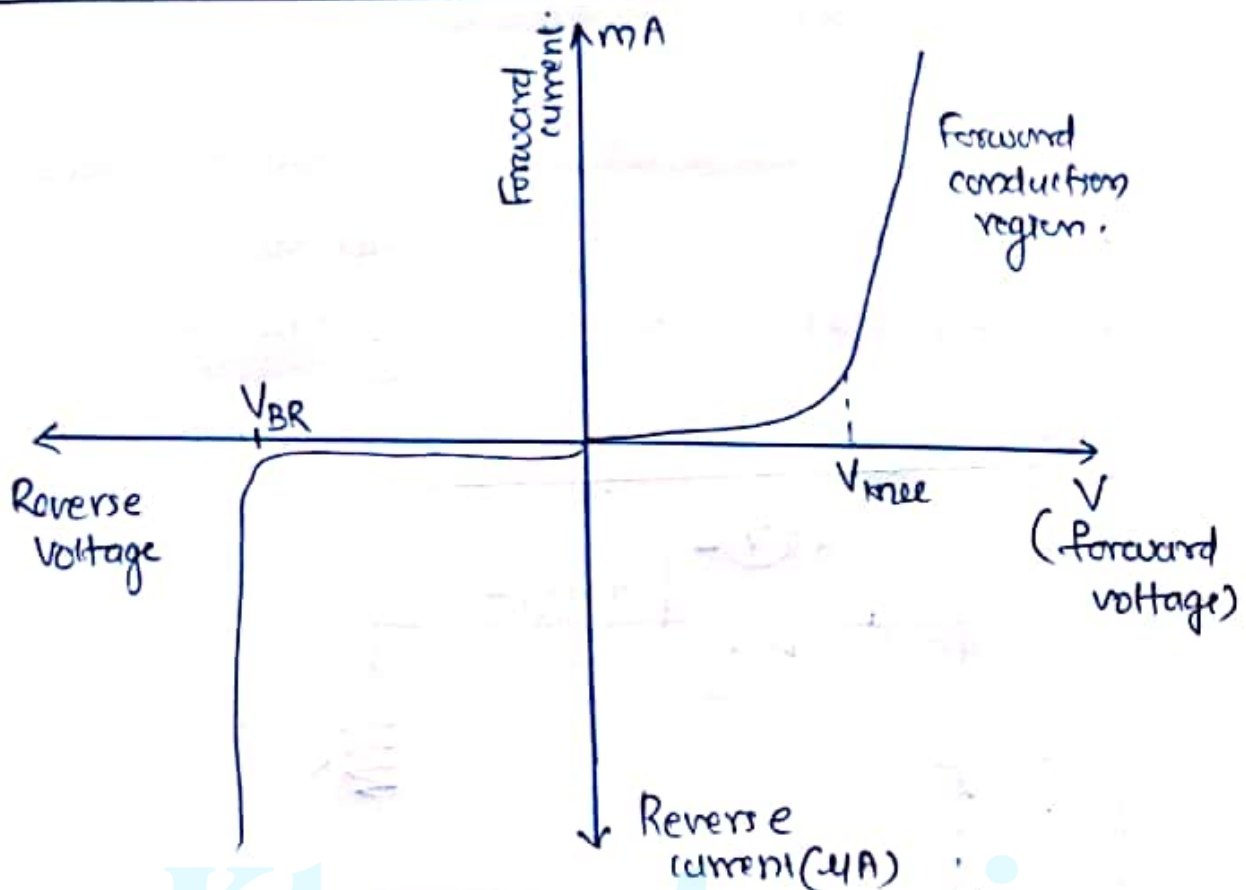 mA
Forward
current.
Forward
conduction
region.
V_BR
Reverse
voltage
V_knee
V
(forward
voltage)
Reverse
current (μA)